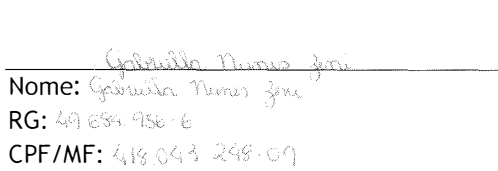 Gabriella Nunes Zeni
Nome: Gabriella Nunes Zeni
RG: 49 684 956-6
CPF/MF: 418.043 248-09